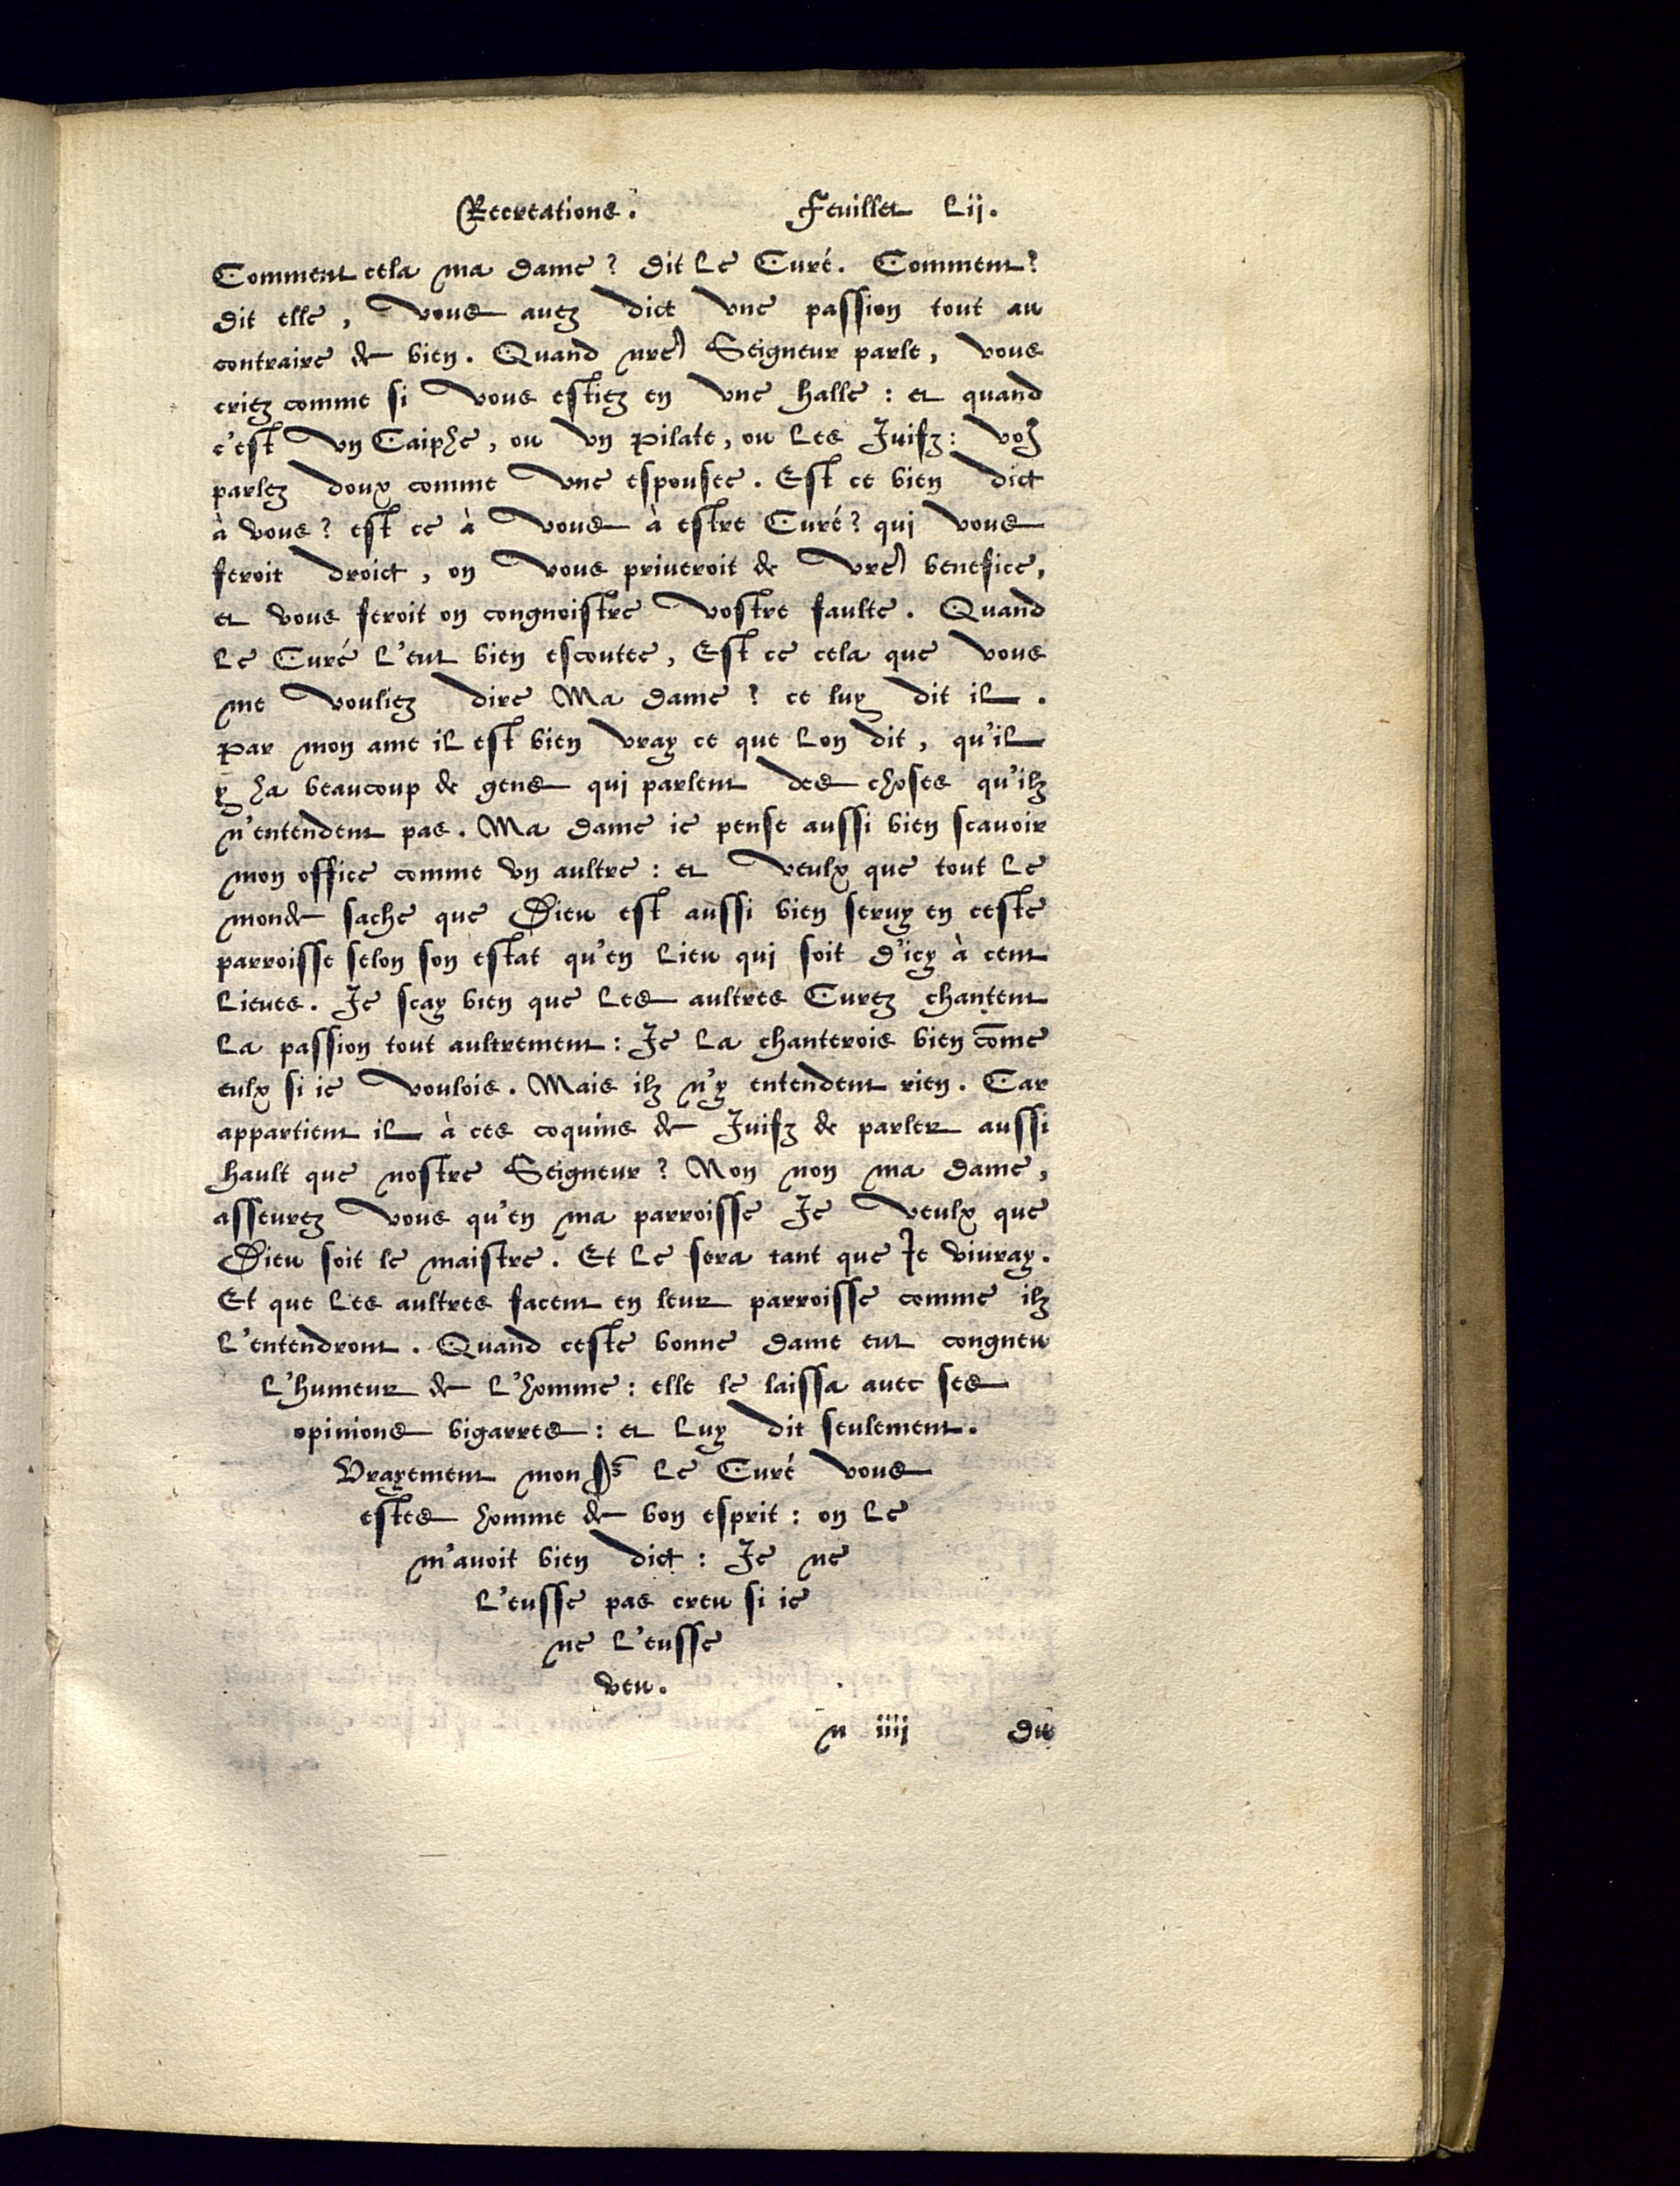 Recreations. Feuillet Lij.
Comment cela ma dame ? dit le Curé. Comment ?
dit elle, vous auez dict vne passion tout au
contraire de bien. Quand nr̃e Seigneur parle, vous
criez comme si vous estiez en vne halle : et quand
c'est vn Caiphe, ou vn Pilate, ou les Juifz : vo9
parlez doux comme vne espousee. Est ce bien dict
à vous ? est ce à vous à estre Curé ? qui vous
feroit droict, on vous priueroit de vr̃e benefice,
et vous feroit on congnoistre vostre faulte. Quand
le Curé l'eut bien escoutee, Est ce cela que vous
me vouliez dire Ma dame ? ce luy dit il.
Par mon ame il est bien vray ce que lon dit, qu'il
y ha beaucoup de gens qui parlent des choses qu'ilz
n'entendent pas. Ma dame ie pense aussi bien scauoir
mon office comme vn aultre : et veulx que tout le
monde sache que Dieu est aussi bien seruy en ceste
parroisse selon son estat qu'en lieu qui soit d'icy à cent
lieues. Je scay bien que les aultres Curez chantent
la passion tout aultrement : Je la chanterois bien cõme
eulx si ie voulois. Mais ilz n'y entendent rien. Car
appartient il à ces coquins de Juifz de parler aussi
hault que nostre Seigneur ? Non non ma dame,
asseurez vous qu'en ma parroisse Je veulx que
Dieu soit le maistre. Et le sera tant que Je viuray.
Et que les aultres facent en leur parroisse comme ilz
l'entendront. Quand ceste bonne dame eut congneu
l'humeur de l'homme : elle le laissa auec ses
opinions bigarres : et luy dit seulement.
Vrayement monsr̃ le Curé vous
estes homme de bon esprit : on le
m'auoit bien dict : Je ne
l'eusse pas creu si ie
ne l'eusse
veu.
n iiij du